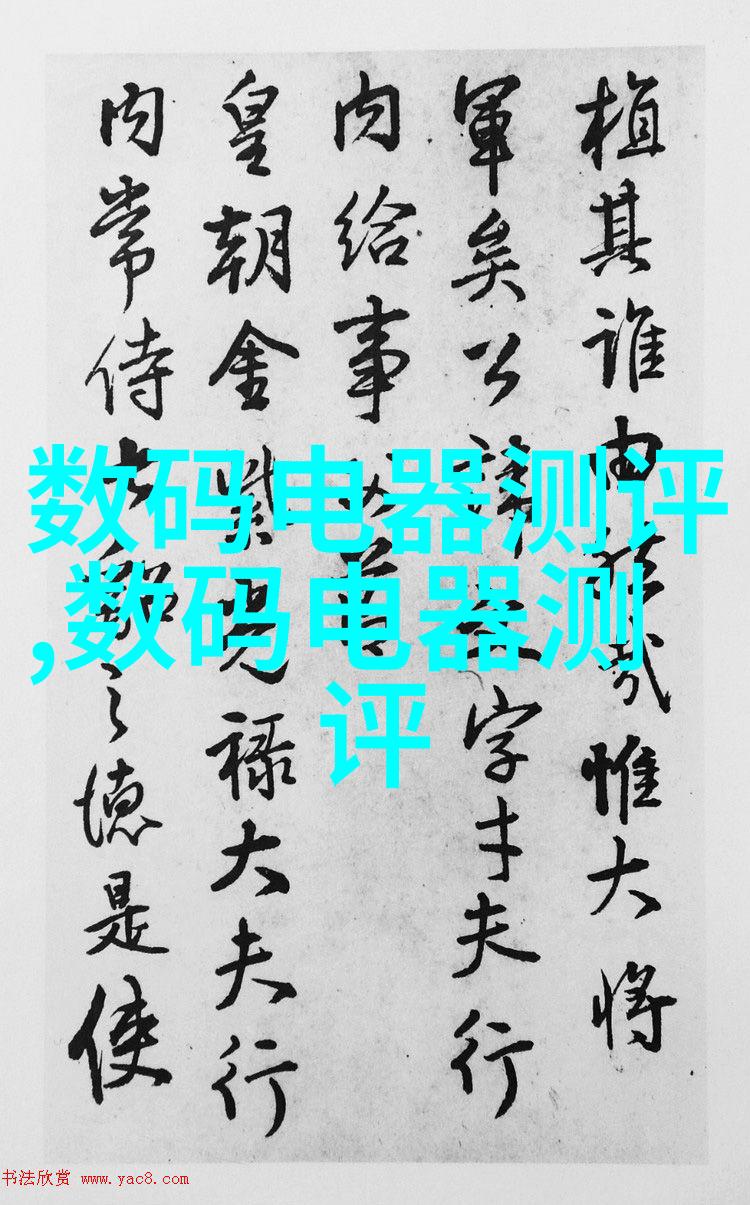 植其誰由哉惟大將
軍矣公諱文字才夫行
内給事
皇朝金紫光禄大夫行
内常侍之德是使
数码电器测评
,数码电器测
评
书法欣赏 www.yac8.com